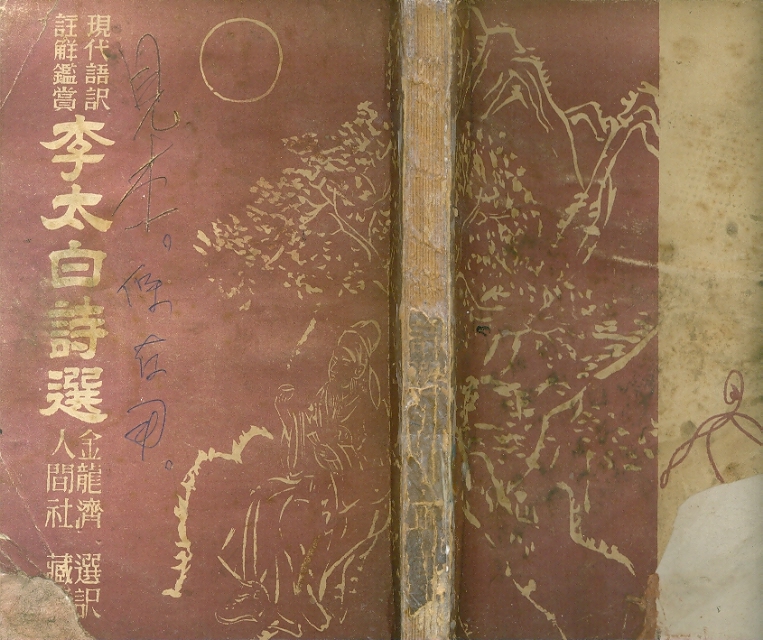 現代語訳
註解鑑賞
李太白詩選
金龍濟 選訳
人間社 藏
見本。
保存用。